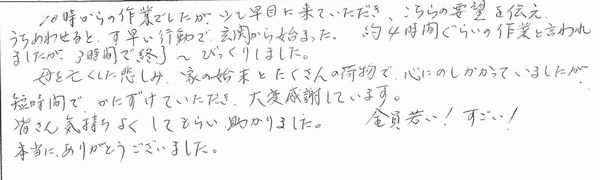 10時からの作業でしたが、少し早目に来ていただき、こちらの要望を伝え、
うちあわせると、す早い行動で、玄関から始まった。 約4時間ぐらいの作業と言われ
ましたが、3時間で終了〜びっくりしました。
母を亡くした悲しみ、家の始末とたくさんの荷物で、心にのしかかっていましたが
短時間で、かたずけていただき、大変感謝しています。
皆さん気持ちよくしてもらい、助かりました。 全員若い！すごい！
本当に、ありがとうございました。